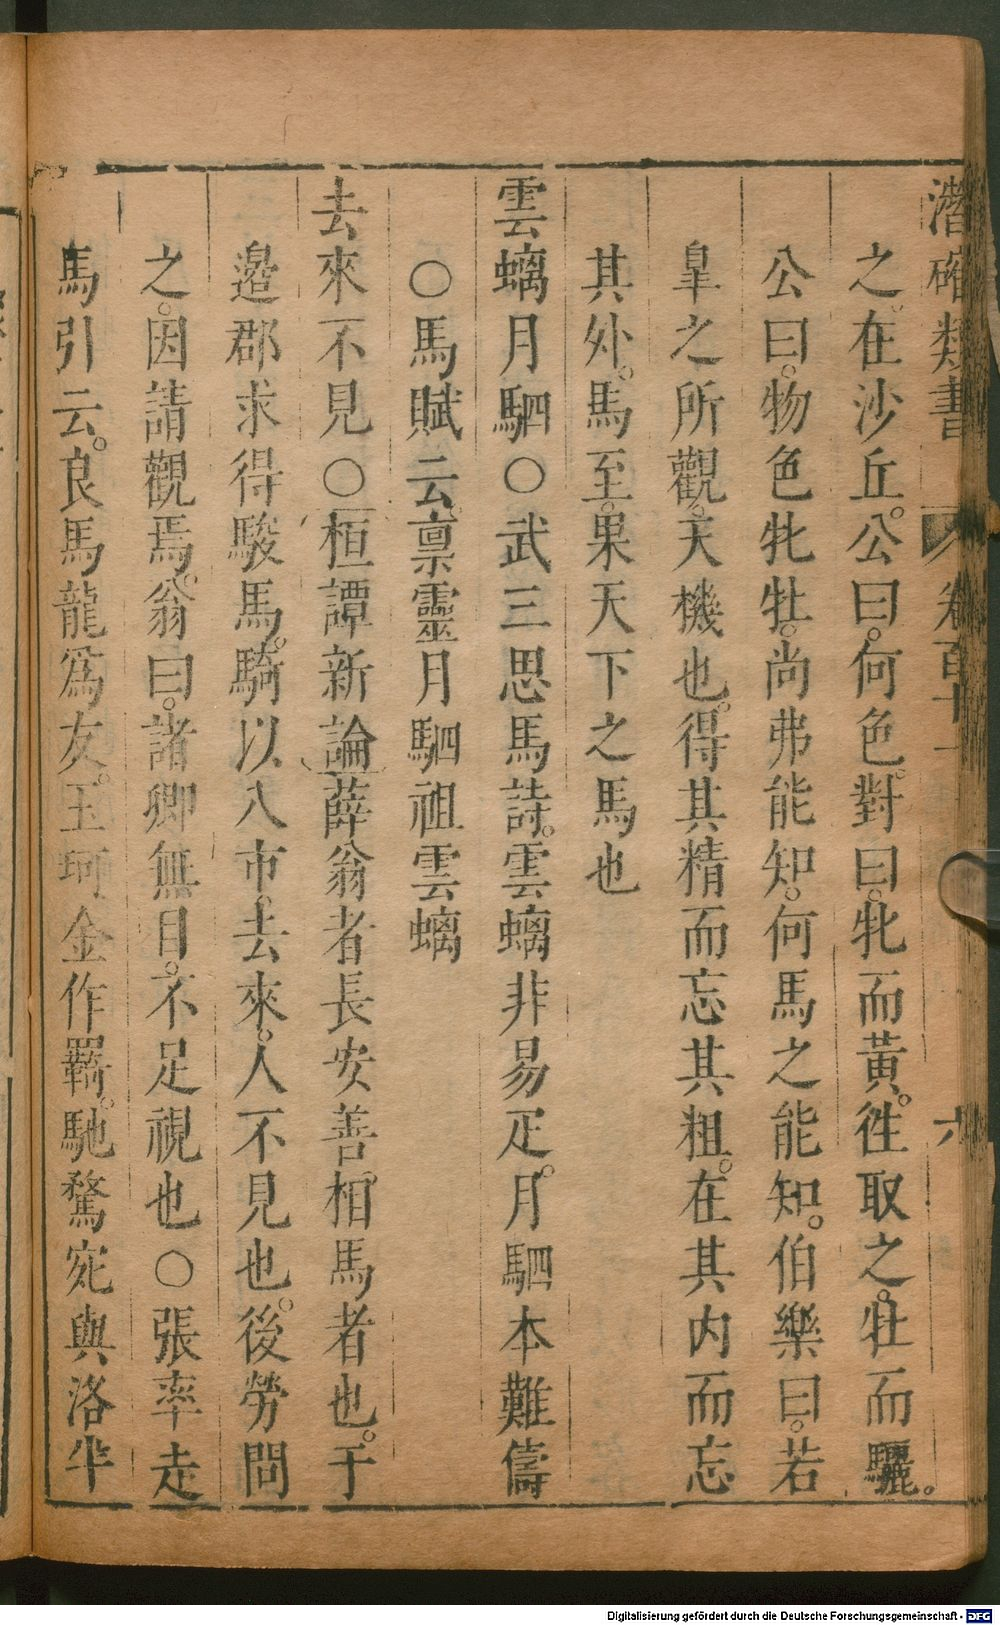 潛確類書 卷百十一 六
之在沙丘。公曰。何色。對曰。牝而黃。徃取之。牡而驪。
公曰。物色牝牡。尚弗能知。何馬之能知。伯樂曰。若
皐之所觀。天機也。得其精而忘其粗。在其内而忘
其外。馬至。果天下之馬也
雲螭月駟○武三思馬詩。雲螭非易疋。月駟本難儔
○馬賦云。禀靈月駟祖雲螭
去來不見○桓譚新論薛翁者長安善相馬者也。于
邉郡求得駿馬。騎以入市。去來。人不見也。後勞問
之。因請觀焉。翁曰。諸卿無目。不足視也○張率走
馬引云。良馬龍爲友。玉珂金作羈。馳騖宛與洛半
Digitalisierung gefördert durch die Deutsche Forschungsgemeinschaft - DFG